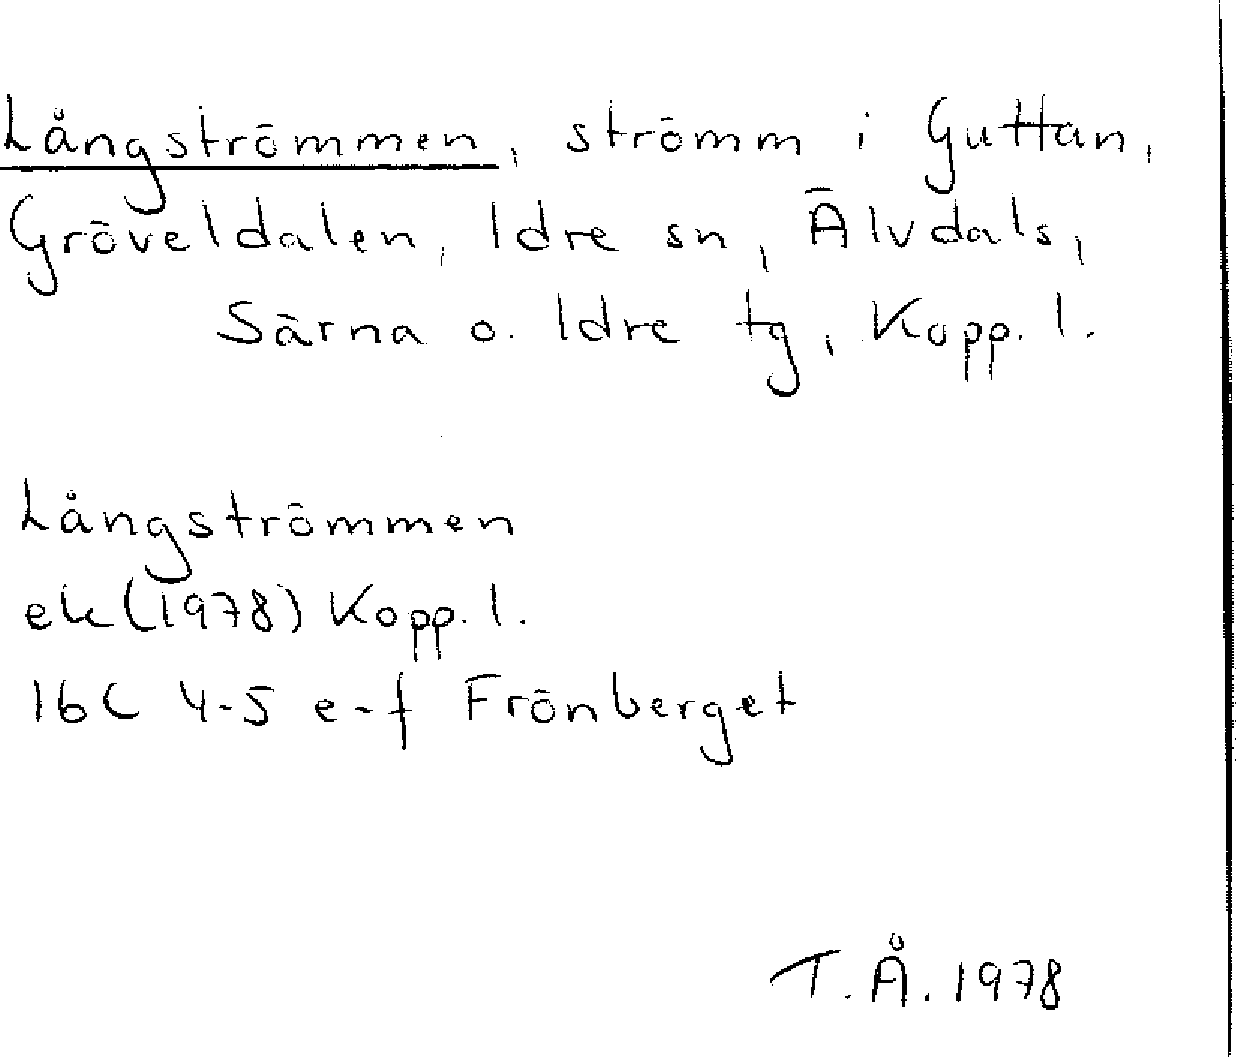 Långströmmen, strömm i Guttan,
Gröveldalen, Idre sn, Älvdals,
Särna o. Idre tg, Kopp. l.
Långströmmen
ek (1978) Kopp. l.
16C 4-5 e-f Frönberget
T. Å. 1978